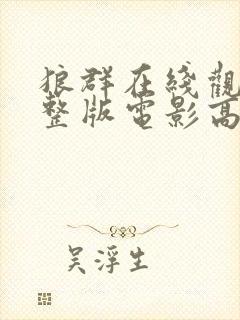 狼群在綫觀
整版電影高
吳浮生